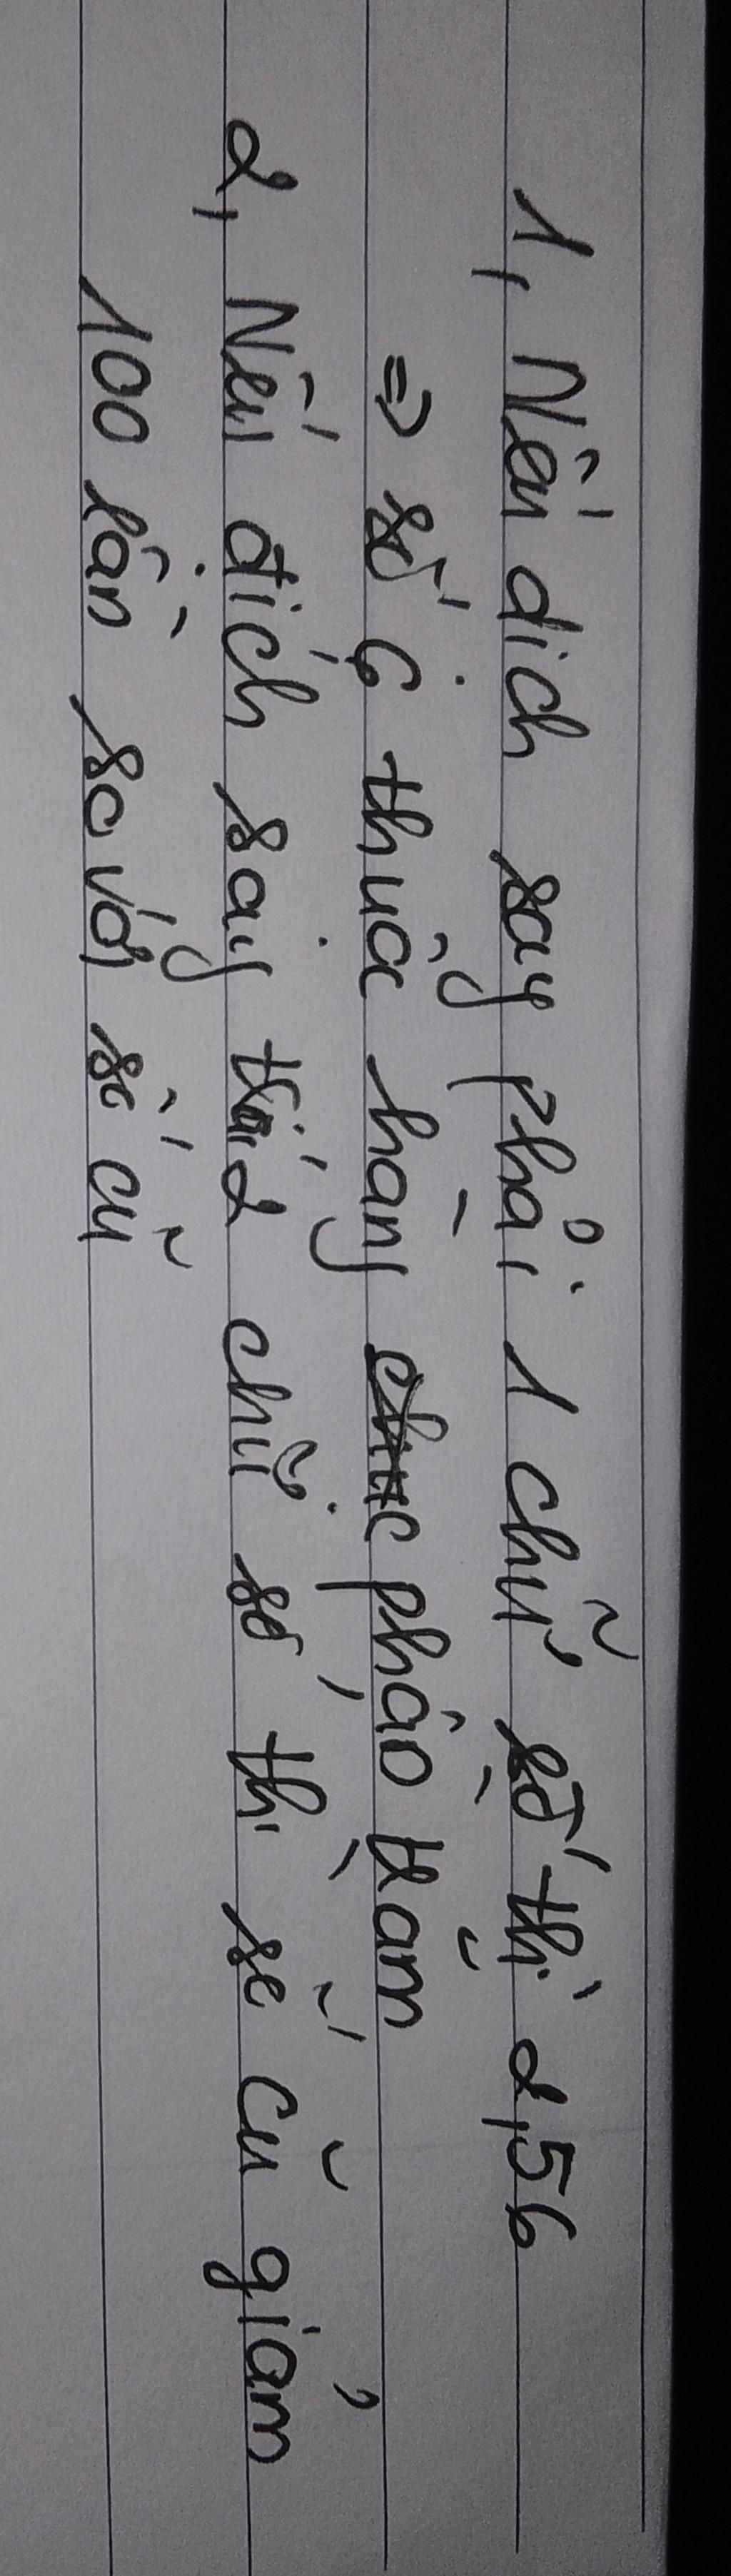 1, Nếu dịch say phải 1 chữ số thì 2,56
=> số 6 thuộc hàng phần trăm
2, Nếu dịch sang trái 2 chữ số thì số cũ giảm
100 lần so với số cũ